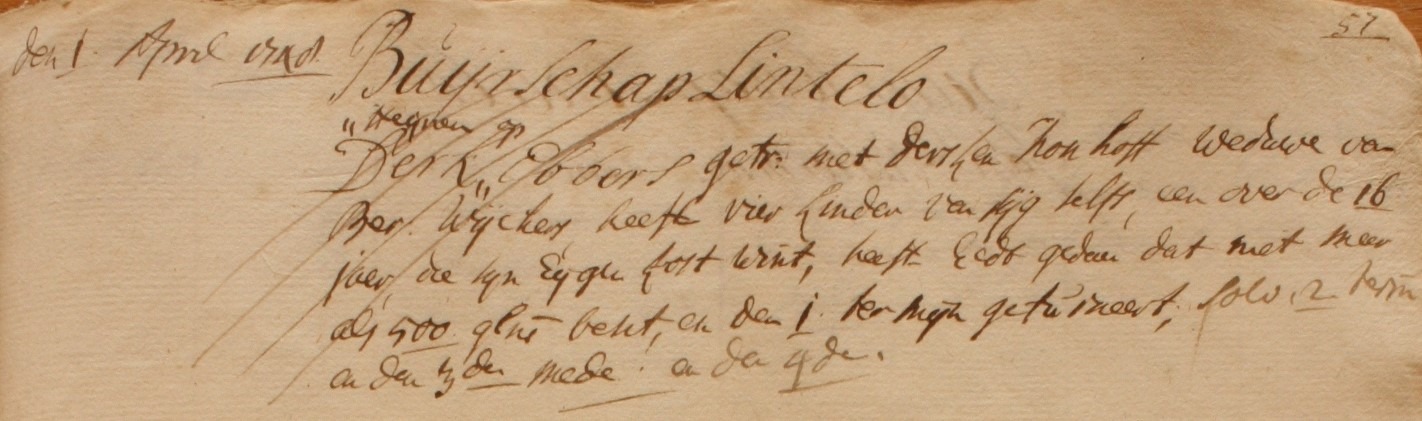 57
den 1. April 1748.
Buijrschap Lintelo
„ op
Derk „ Ebbers getr: met Dersken Thon hoff weduwe van
Ber. Wijchers heeft vier kinder van sijg selfs, een over de 16
jaer, die sijn Eijgen kost wint, heeft Eedt gedaen dat niet meer
als 500 glns besit, en den 1. termijn gefurneert, solv. 2 termn
en den 3den mede. en den 4de.